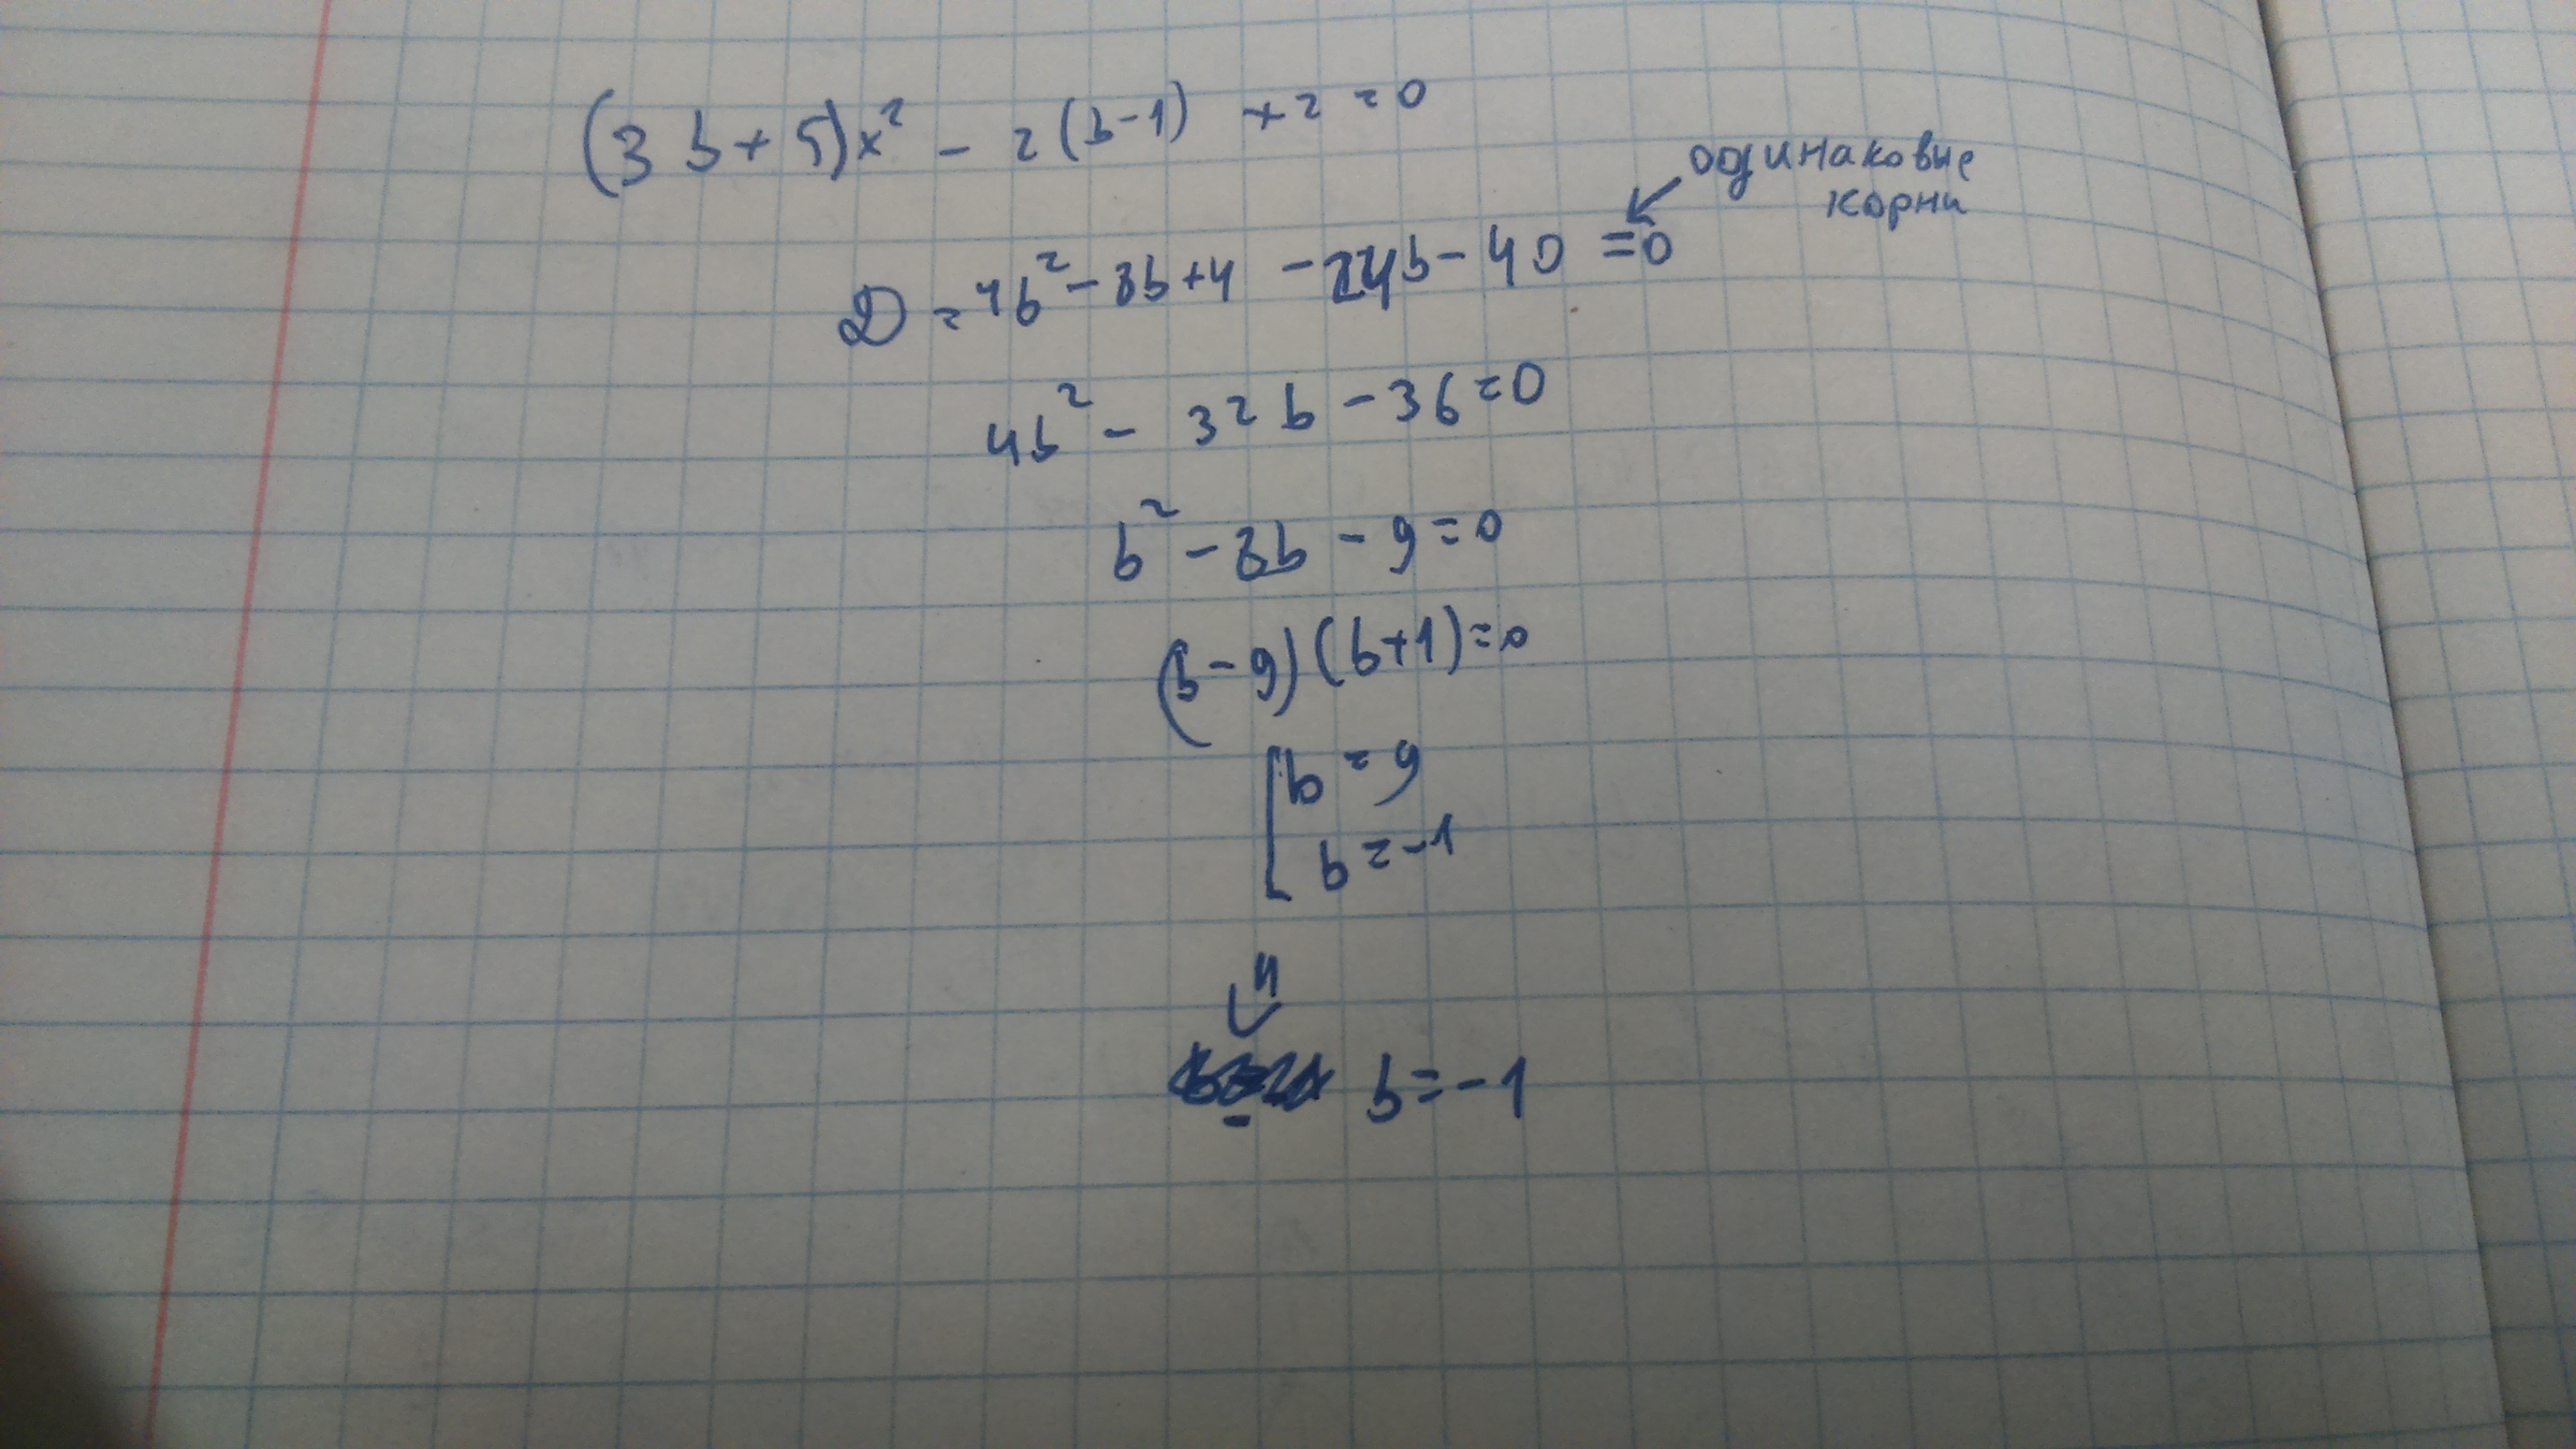 (3b+5)x² - 2(b-1) +2=0
одинаковые
корни
D=4b²-8b+4 -24b-40 =0
4b² - 32b - 36=0
b² - 8b - 9=0
(b-9)(b+1)=0
[b=9
b=-1
⇓
b=-1